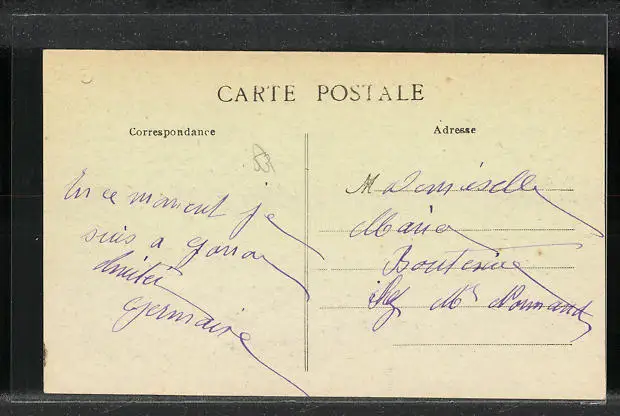 CARTE POSTALE
Correspondance
En ce moment je
suis a Gorron
Amitié
Germaine
Adresse
Mademoiselle
Maria
chez Mr Normand